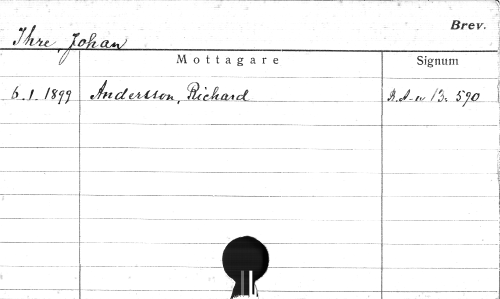 Brev.
Ihre, Johan
Mottagare Signum
6.1.1899 Andersson, Richard R.A-n 13: 590